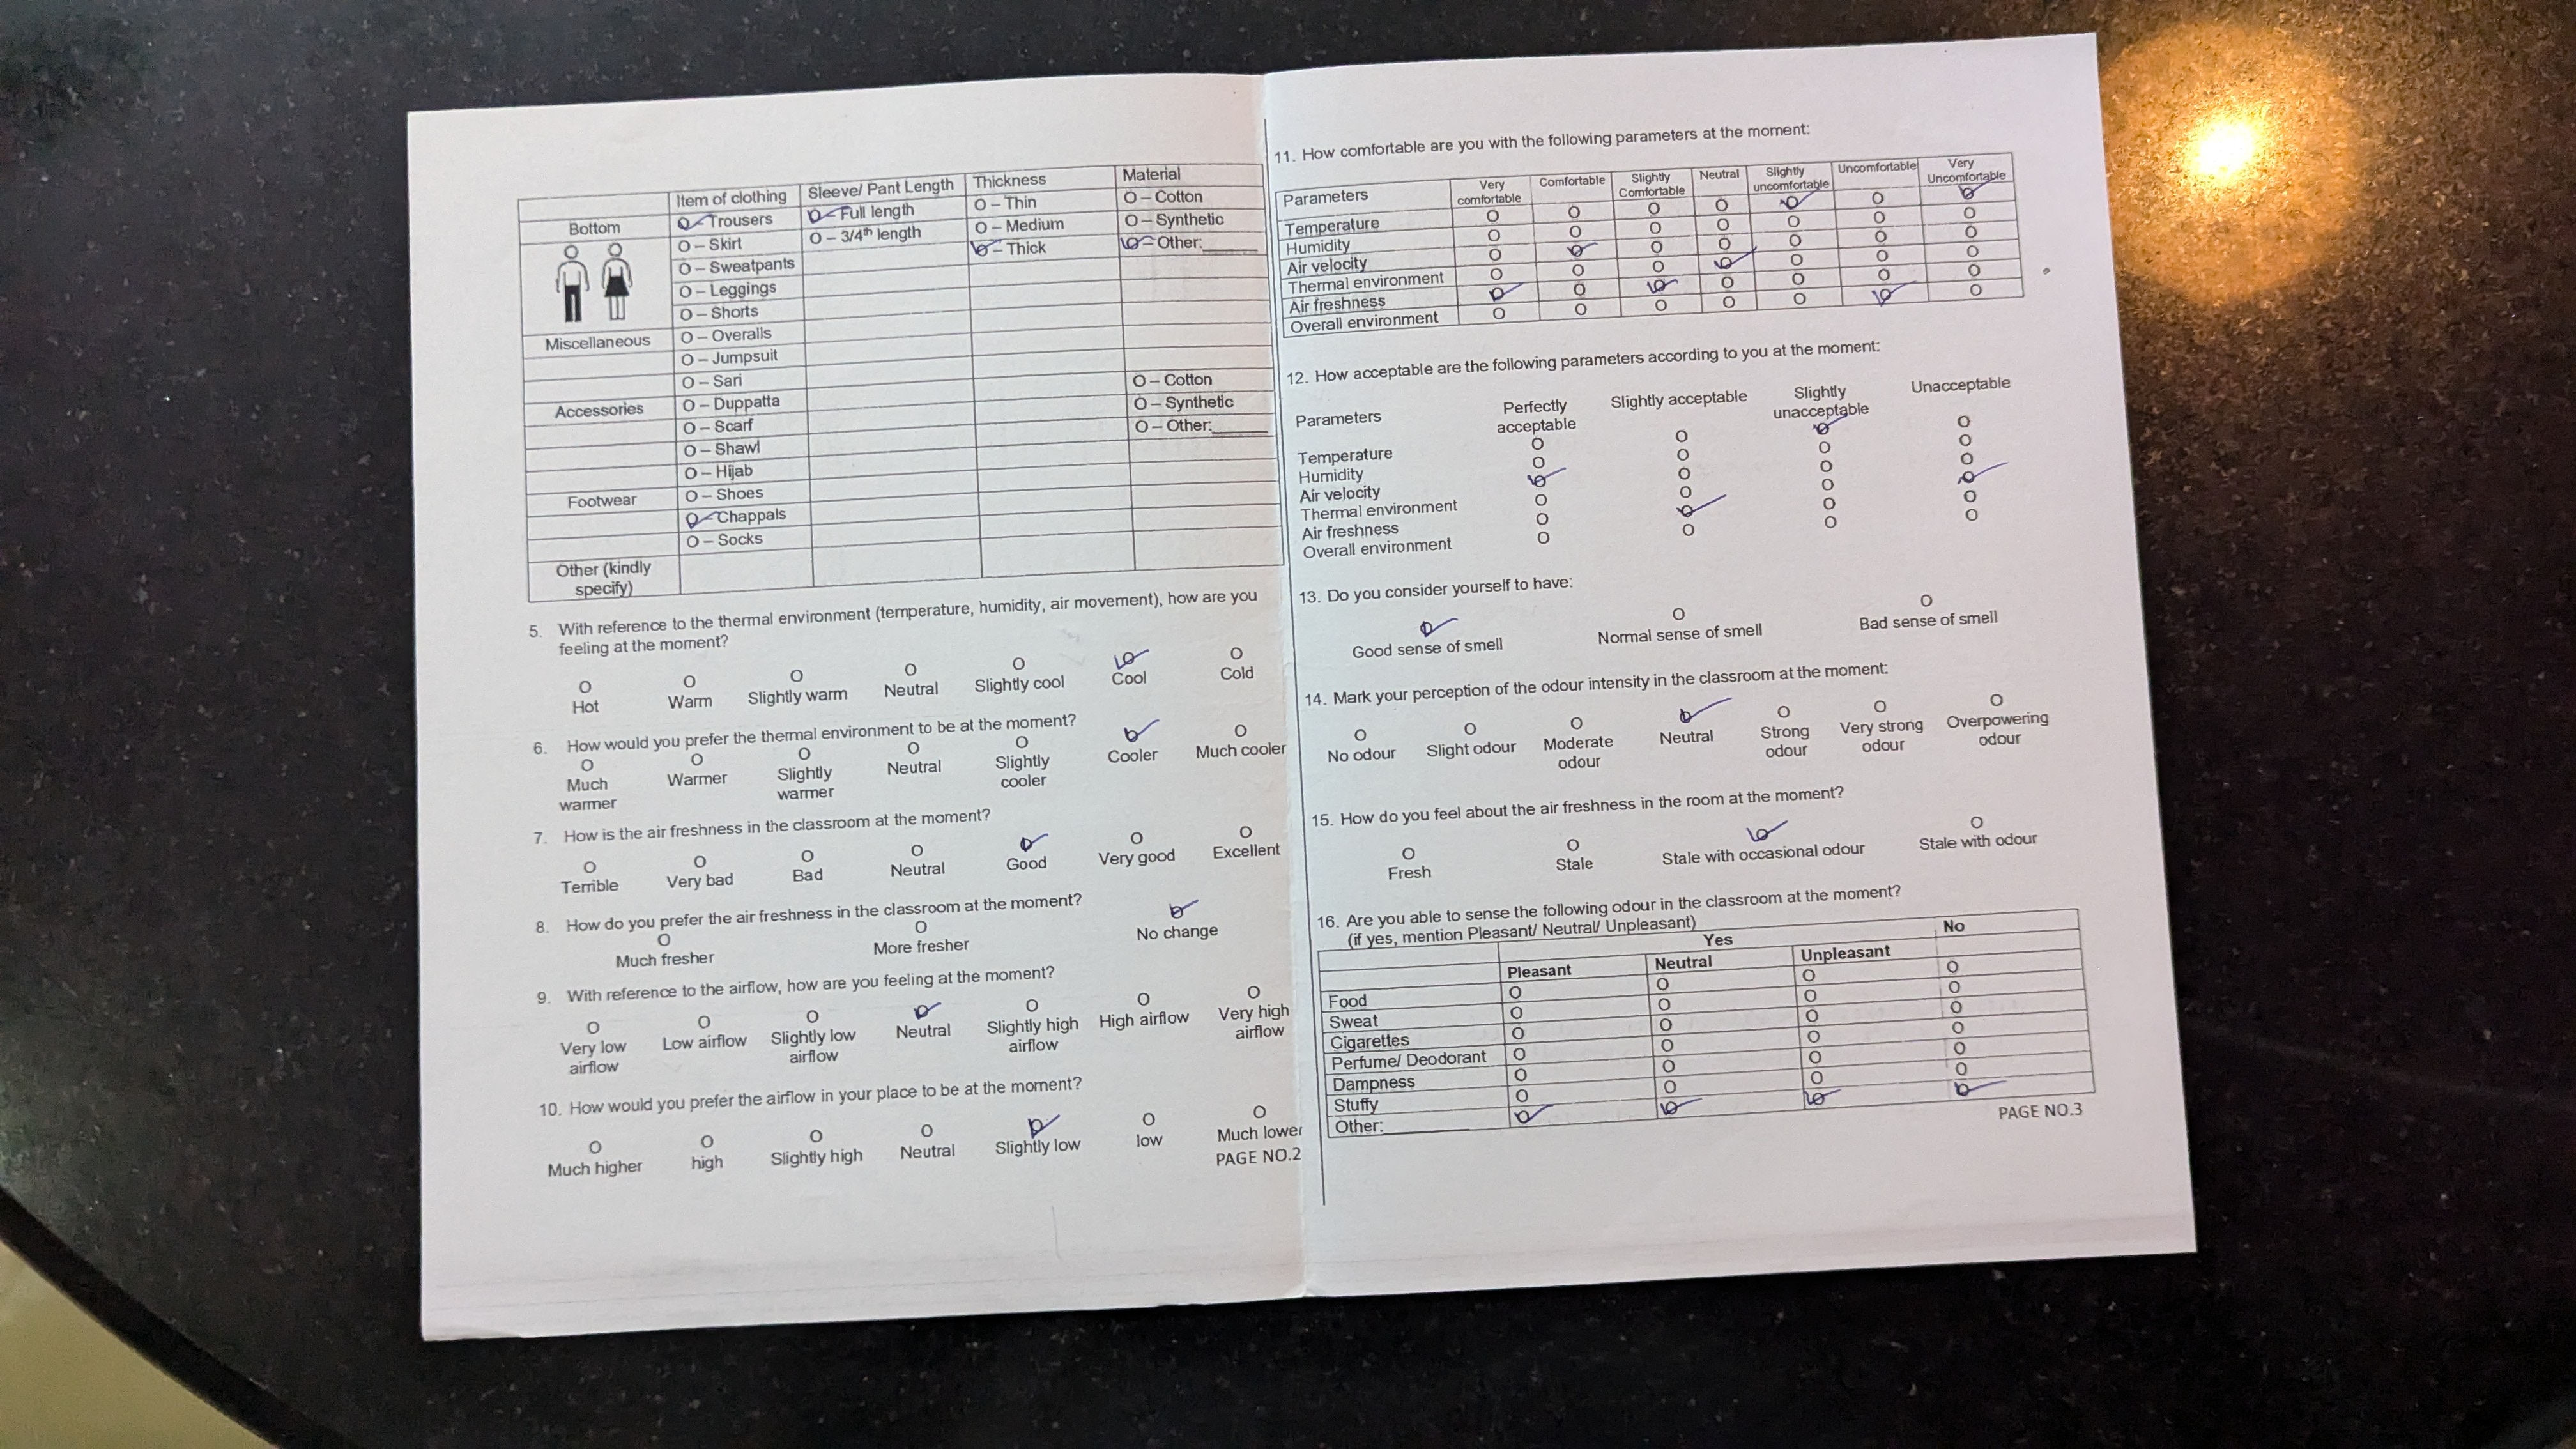 Item of clothing Sleeve/ Pant Length Thickness Material
Bottom O – Trousers O – Full length O – Thin O – Cotton
O – Skirt O – 3/4th length O – Medium O – Synthetic
O – Sweatpants O – Thick O – Other:______
O – Leggings
O – Shorts
Miscellaneous O – Overalls
O – Jumpsuit
O – Sari O – Cotton
Accessories O – Duppatta O – Synthetic
O – Scarf O – Other:______
O – Shawl
O – Hijab
Footwear O – Shoes
O – Chappals
O – Socks
Other (kindly
specify)
5. With reference to the thermal environment (temperature, humidity, air movement), how are you
feeling at the moment?
O O O O O O O
Hot Warm Slightly warm Neutral Slightly cool Cool Cold
6. How would you prefer the thermal environment to be at the moment?
O O O O O O O
Much Warmer Slightly Neutral Slightly Cooler Much cooler
warmer warmer cooler
7. How is the air freshness in the classroom at the moment?
O O O O O O O
Terrible Very bad Bad Neutral Good Very good Excellent
8. How do you prefer the air freshness in the classroom at the moment?
O O O
Much fresher More fresher No change
9. With reference to the airflow, how are you feeling at the moment?
O O O O O O O
Very low Low airflow Slightly low Neutral Slightly high High airflow Very high
airflow airflow airflow airflow
10. How would you prefer the airflow in your place to be at the moment?
O O O O O O O
Much higher high Slightly high Neutral Slightly low low Much lower
PAGE NO.2
11. How comfortable are you with the following parameters at the moment:
Parameters Very Comfortable Slightly Neutral Slightly Uncomfortable Very
comfortable Comfortable uncomfortable Uncomfortable
Temperature O O O O O O O
Humidity O O O O O O O
Air velocity O O O O O O O
Thermal environment O O O O O O O
Air freshness O O O O O O O
Overall environment O O O O O O O
12. How acceptable are the following parameters according to you at the moment:
Parameters Perfectly Slightly acceptable Slightly Unacceptable
acceptable unacceptable
Temperature O O O O
Humidity O O O O
Air velocity O O O O
Thermal environment O O O O
Air freshness O O O O
Overall environment O O O O
13. Do you consider yourself to have:
O O O
Good sense of smell Normal sense of smell Bad sense of smell
14. Mark your perception of the odour intensity in the classroom at the moment:
O O O O O O O
No odour Slight odour Moderate Neutral Strong Very strong Overpowering
odour odour odour odour
15. How do you feel about the air freshness in the room at the moment?
O O O O
Fresh Stale Stale with occasional odour Stale with odour
16. Are you able to sense the following odour in the classroom at the moment?
(if yes, mention Pleasant/ Neutral/ Unpleasant)
Yes No
Pleasant Neutral Unpleasant
Food O O O O
Sweat O O O O
Cigarettes O O O O
Perfume/ Deodorant O O O O
Dampness O O O O
Stuffy O O O O
Other:__________ O O O O
PAGE NO.3